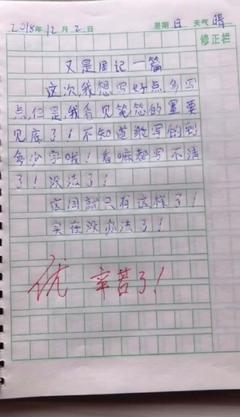 2018年12月2日 星期日 天气晴
修正栏
又是周记一篇
这次,我想写好点,多写
点,但是,我看见笔芯的墨要
见底了!不知道能写的到
多少字哦!看嘛都写不清
了!没法了!
这周就只有这样了!
实在没办法了!
优 辛苦了!